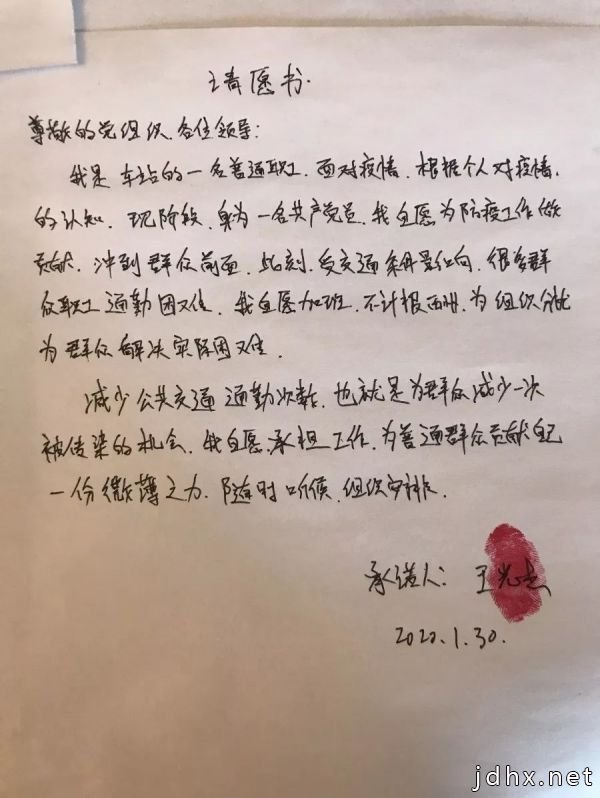 请愿书.
尊敬的党组织.各位领导:
我是车站的一名普通职工.面对疫情.根据个人对疫情.
的认知.现阶段.身为一名共产党员.我自愿为防疫工作做
贡献.冲到群众前面.此刻.受交通条件影响.很多群
众职工通勤困难.我自愿加班.不计报酬.为组织分忧
为群众解决实际困难.
减少公共交通通勤次数.也就是为群众减少一次
被传染的机会.我自愿.承担工作.为普通群众贡献自己
一份微薄之力.随时听候.组织安排.
承诺人: 王光
2020.1.30.
jdhx.net